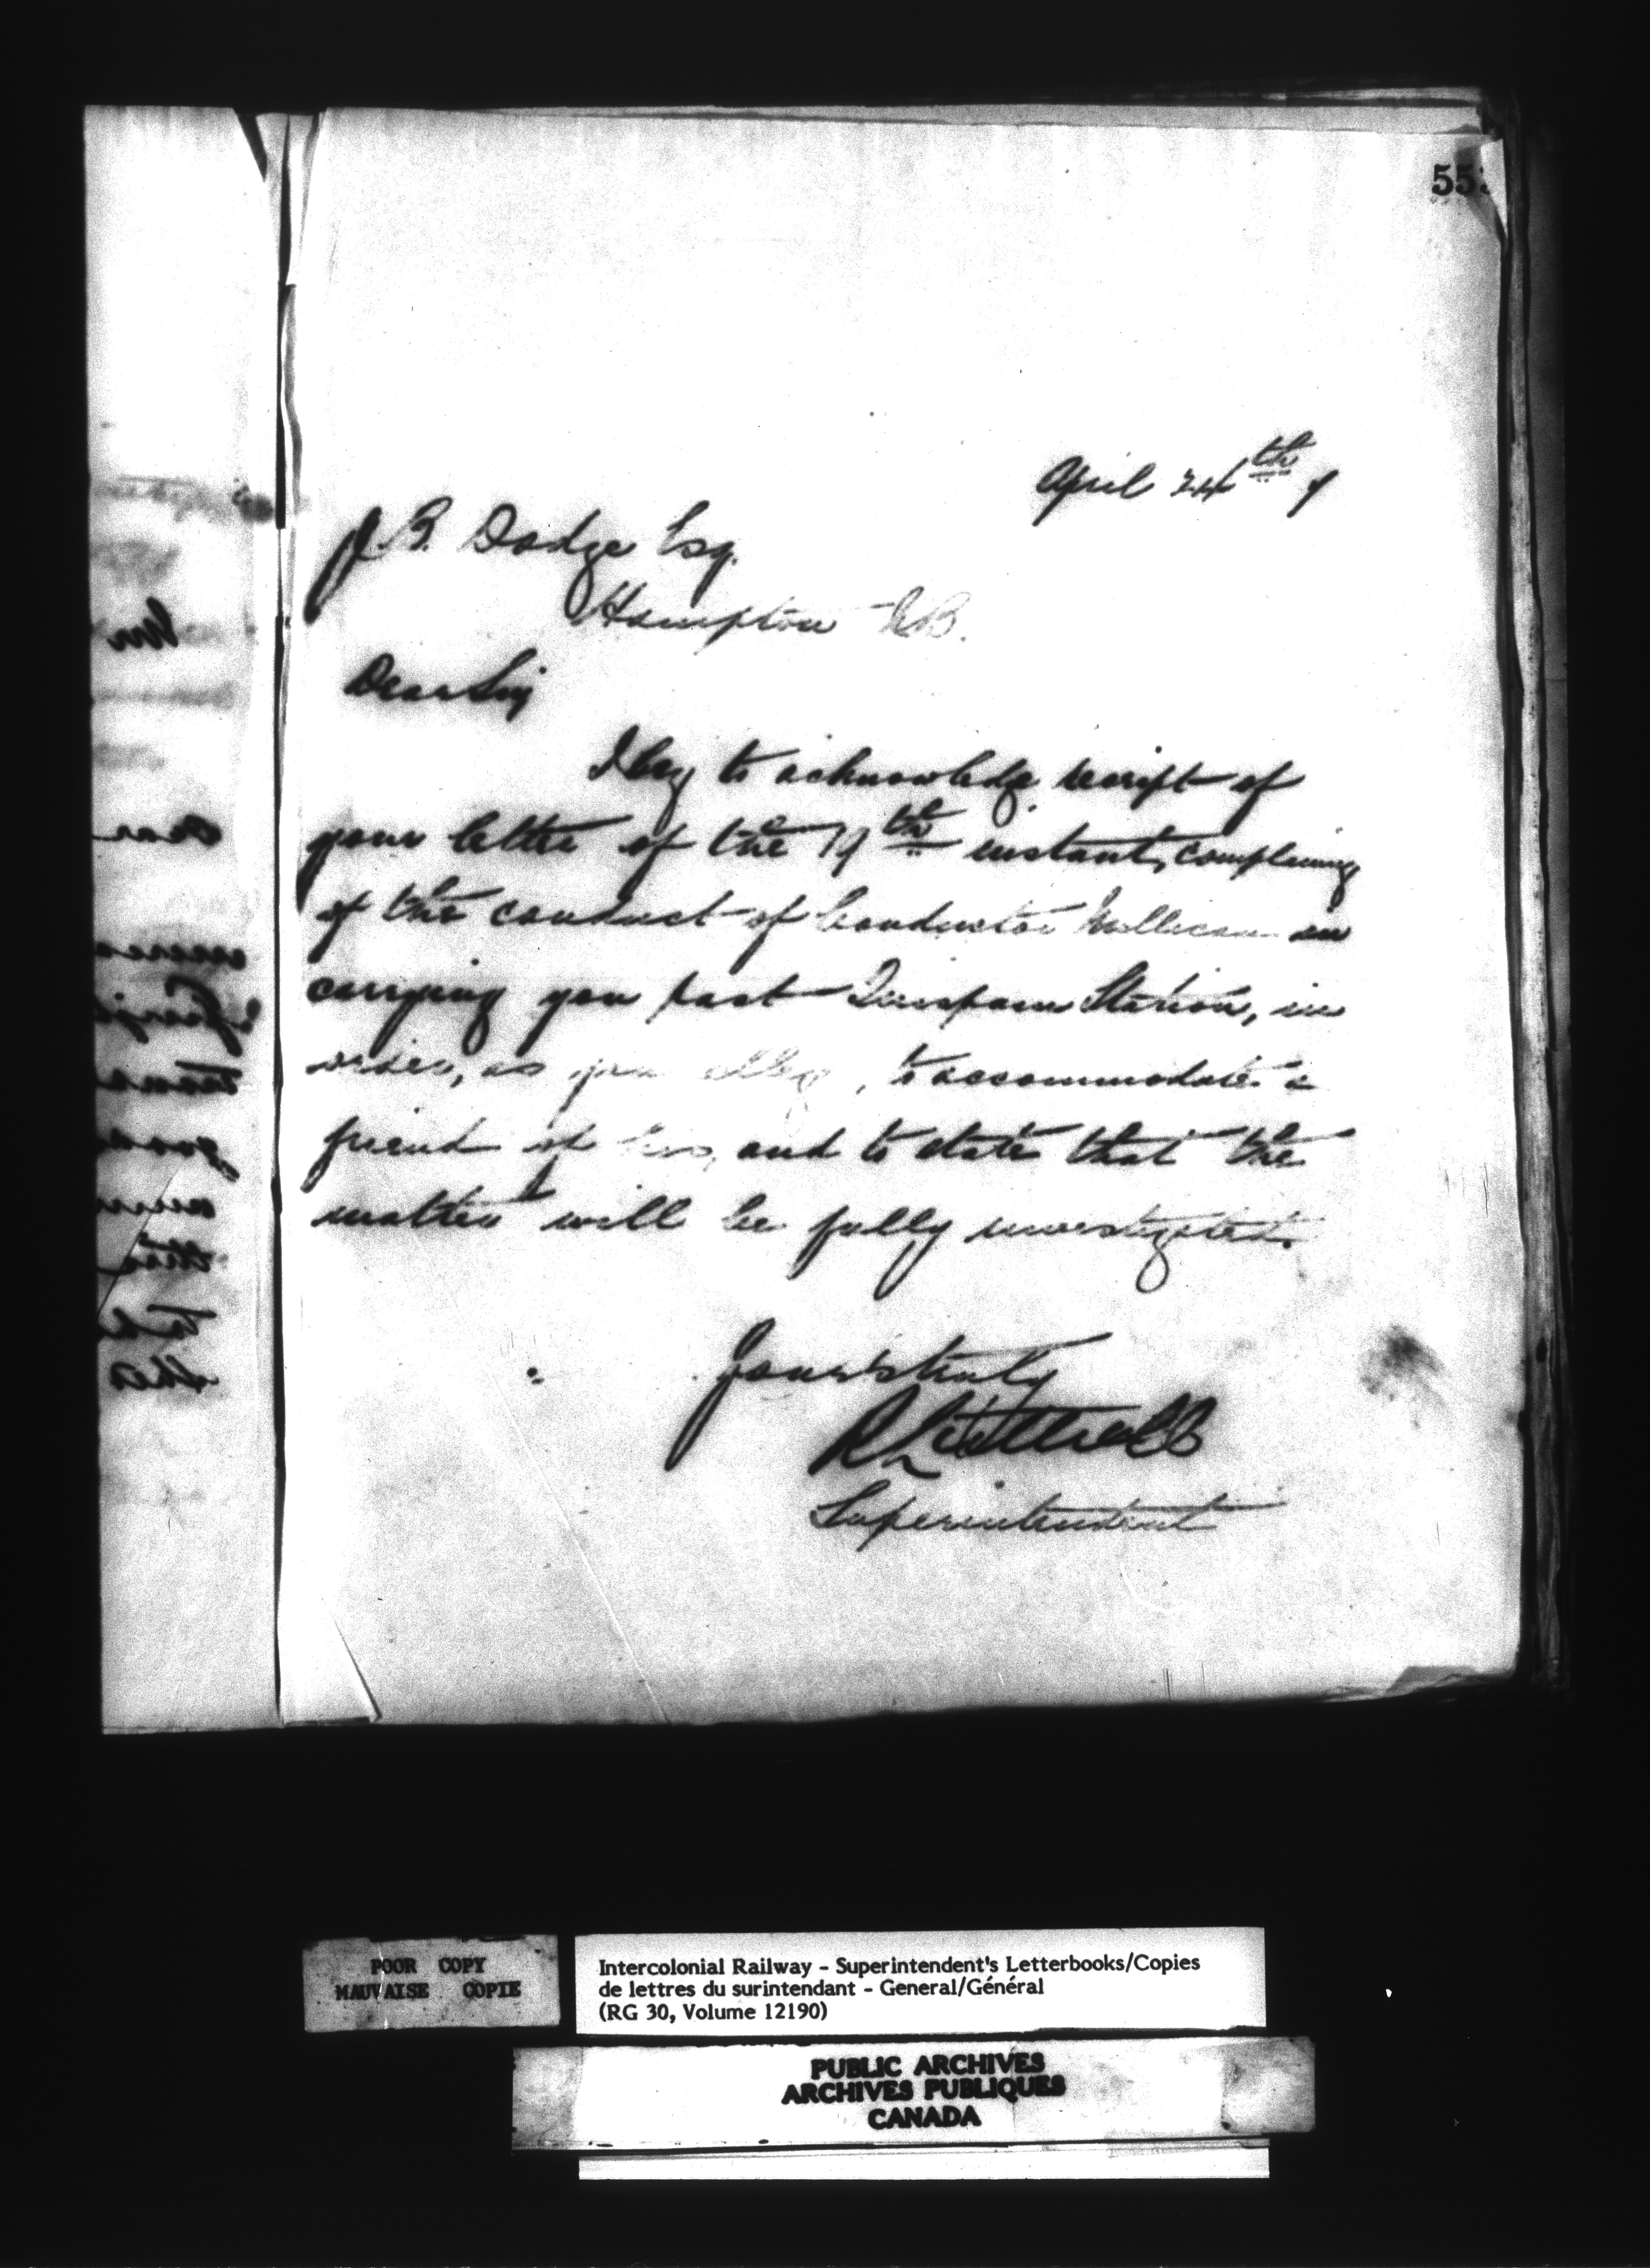 55
April 24th
J. B. Dodge Esq.
Hampton N.B.
Dear Sir
I beg to acknowledge receipt of
your letter of the 19th instant, complaining
of the conduct of Conductor Millican in
carrying you past Quispam Station, in
order, as you allege, to accommodate a
friend of his, and to state that the
matter will be fully investigated.
Yours truly
Superintendent
POOR COPY
MAUVAISE COPIE
Intercolonial Railway - Superintendent's Letterbooks/Copies
de lettres du surintendant - General/Général
(RG 30, Volume 12190)
PUBLIC ARCHIVES
ARCHIVES PUBLIQUES
CANADA